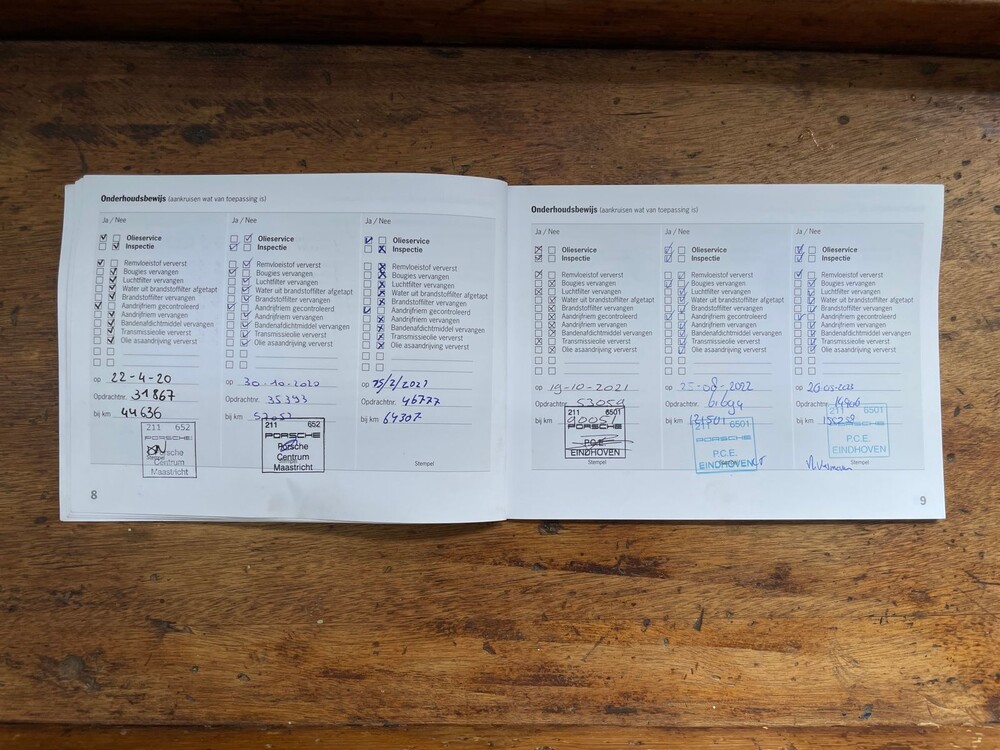 Onderhoudsbewijs (aankruisen wat van toepassing is)
Ja / Nee
Olieservice
Inspectie
Remvloeistof ververst
Bougies vervangen
Luchtfilter vervangen
Water uit brandstoffilter afgetapt
Brandstoffilter vervangen
Aandrijfriem gecontroleerd
Aandrijfriem vervangen
Bandenafdichtmiddel vervangen
Transmissieolie ververst
Olie asaandrijving ververst
op 22-4-20
Opdrachtnr. 31867
bij km 44636
211 652
PORSCHE
Centrum
Maastricht
Stempel
Ja / Nee
Olieservice
Inspectie
Remvloeistof ververst
Bougies vervangen
Luchtfilter vervangen
Water uit brandstoffilter afgetapt
Brandstoffilter vervangen
Aandrijfriem gecontroleerd
Aandrijfriem vervangen
Bandenafdichtmiddel vervangen
Transmissieolie ververst
Olie asaandrijving ververst
op 30-10-2020
Opdrachtnr.
bij km
211 652
PORSCHE
Porsche
Centrum
Maastricht
Ja / Nee
Olieservice
Inspectie
Remvloeistof ververst
Bougies vervangen
Luchtfilter vervangen
Water uit brandstoffilter afgetapt
Brandstoffilter vervangen
Aandrijfriem gecontroleerd
Aandrijfriem vervangen
Bandenafdichtmiddel vervangen
Transmissieolie ververst
Olie asaandrijving ververst
op
Opdrachtnr. 46777
bij km 64307
Stempel
8
Onderhoudsbewijs (aankruisen wat van toepassing is)
Ja / Nee
Olieservice
Inspectie
Remvloeistof ververst
Bougies vervangen
Luchtfilter vervangen
Water uit brandstoffilter afgetapt
Brandstoffilter vervangen
Aandrijfriem gecontroleerd
Aandrijfriem vervangen
Bandenafdichtmiddel vervangen
Transmissieolie ververst
Olie asaandrijving ververst
op 19-10-2021
Opdrachtnr. 53059
bij km
211 6501
PORSCHE
P.C.E.
EINDHOVEN
Stempel
Ja / Nee
Olieservice
Inspectie
Remvloeistof ververst
Bougies vervangen
Luchtfilter vervangen
Water uit brandstoffilter afgetapt
Brandstoffilter vervangen
Aandrijfriem gecontroleerd
Aandrijfriem vervangen
Bandenafdichtmiddel vervangen
Transmissieolie ververst
Olie asaandrijving ververst
op
Opdrachtnr.
bij km
211 6501
PORSCHE
P.C.E.
EINDHOVEN
Stempel
Ja / Nee
Olieservice
Inspectie
Remvloeistof ververst
Bougies vervangen
Luchtfilter vervangen
Water uit brandstoffilter afgetapt
Brandstoffilter vervangen
Aandrijfriem gecontroleerd
Aandrijfriem vervangen
Bandenafdichtmiddel vervangen
Transmissieolie ververst
Olie asaandrijving ververst
op 26-05-2023
Opdrachtnr.
bij km
211 6501
PORSCHE
P.C.E.
EINDHOVEN
Stempel
9